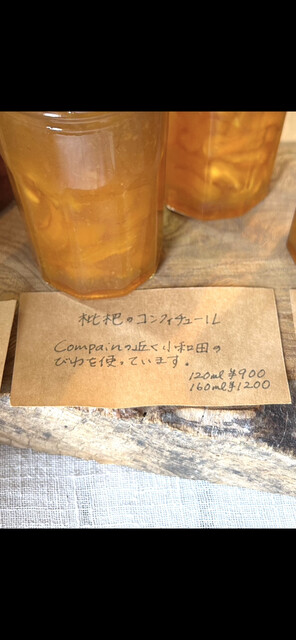 枇杷のコンフィチュール
Compainの近く小和田の
びわを使っています。
120ml ¥900
160ml ¥1200